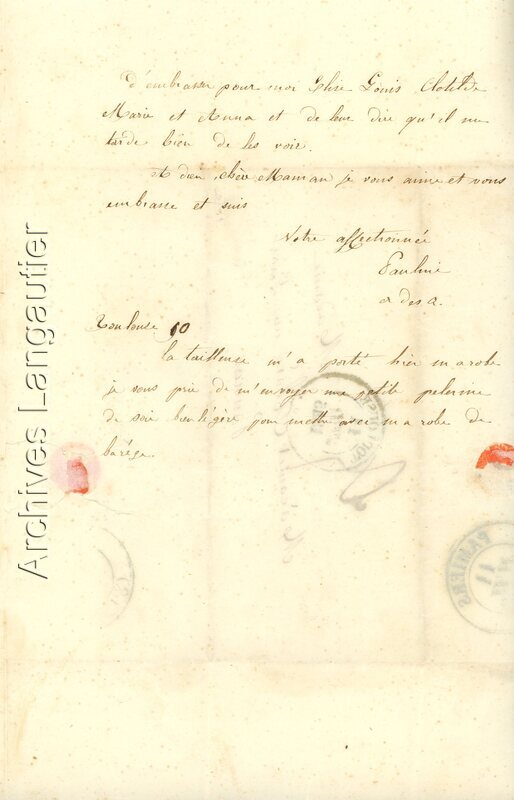 d'embrasser pour moi Elise Louis Clotilde
Marie et Anna et de leur dire qu'il me
tarde bien de les voir.
A dieu chère Maman je vous aime et vous
embrasse et suis
Votre affectionnée
Pauline
a des a.
Toulouse 10
la tailleuse m'a porté hier ma robe
je vous prie de m'envoyer une petite pelerine
de soie bien légère pour mettre avec ma robe de
barége.
Archives Langautier
PAMIERS
11